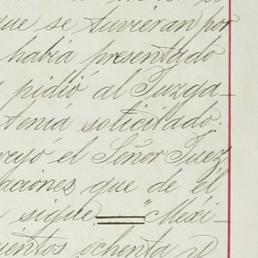 que se tuvieran por
habia presentado
pidió al Juzga-
tenia solicitado.
veyó el Señor Juez
aciones que de él
sigue. = "Méxi-
cientos ochenta y